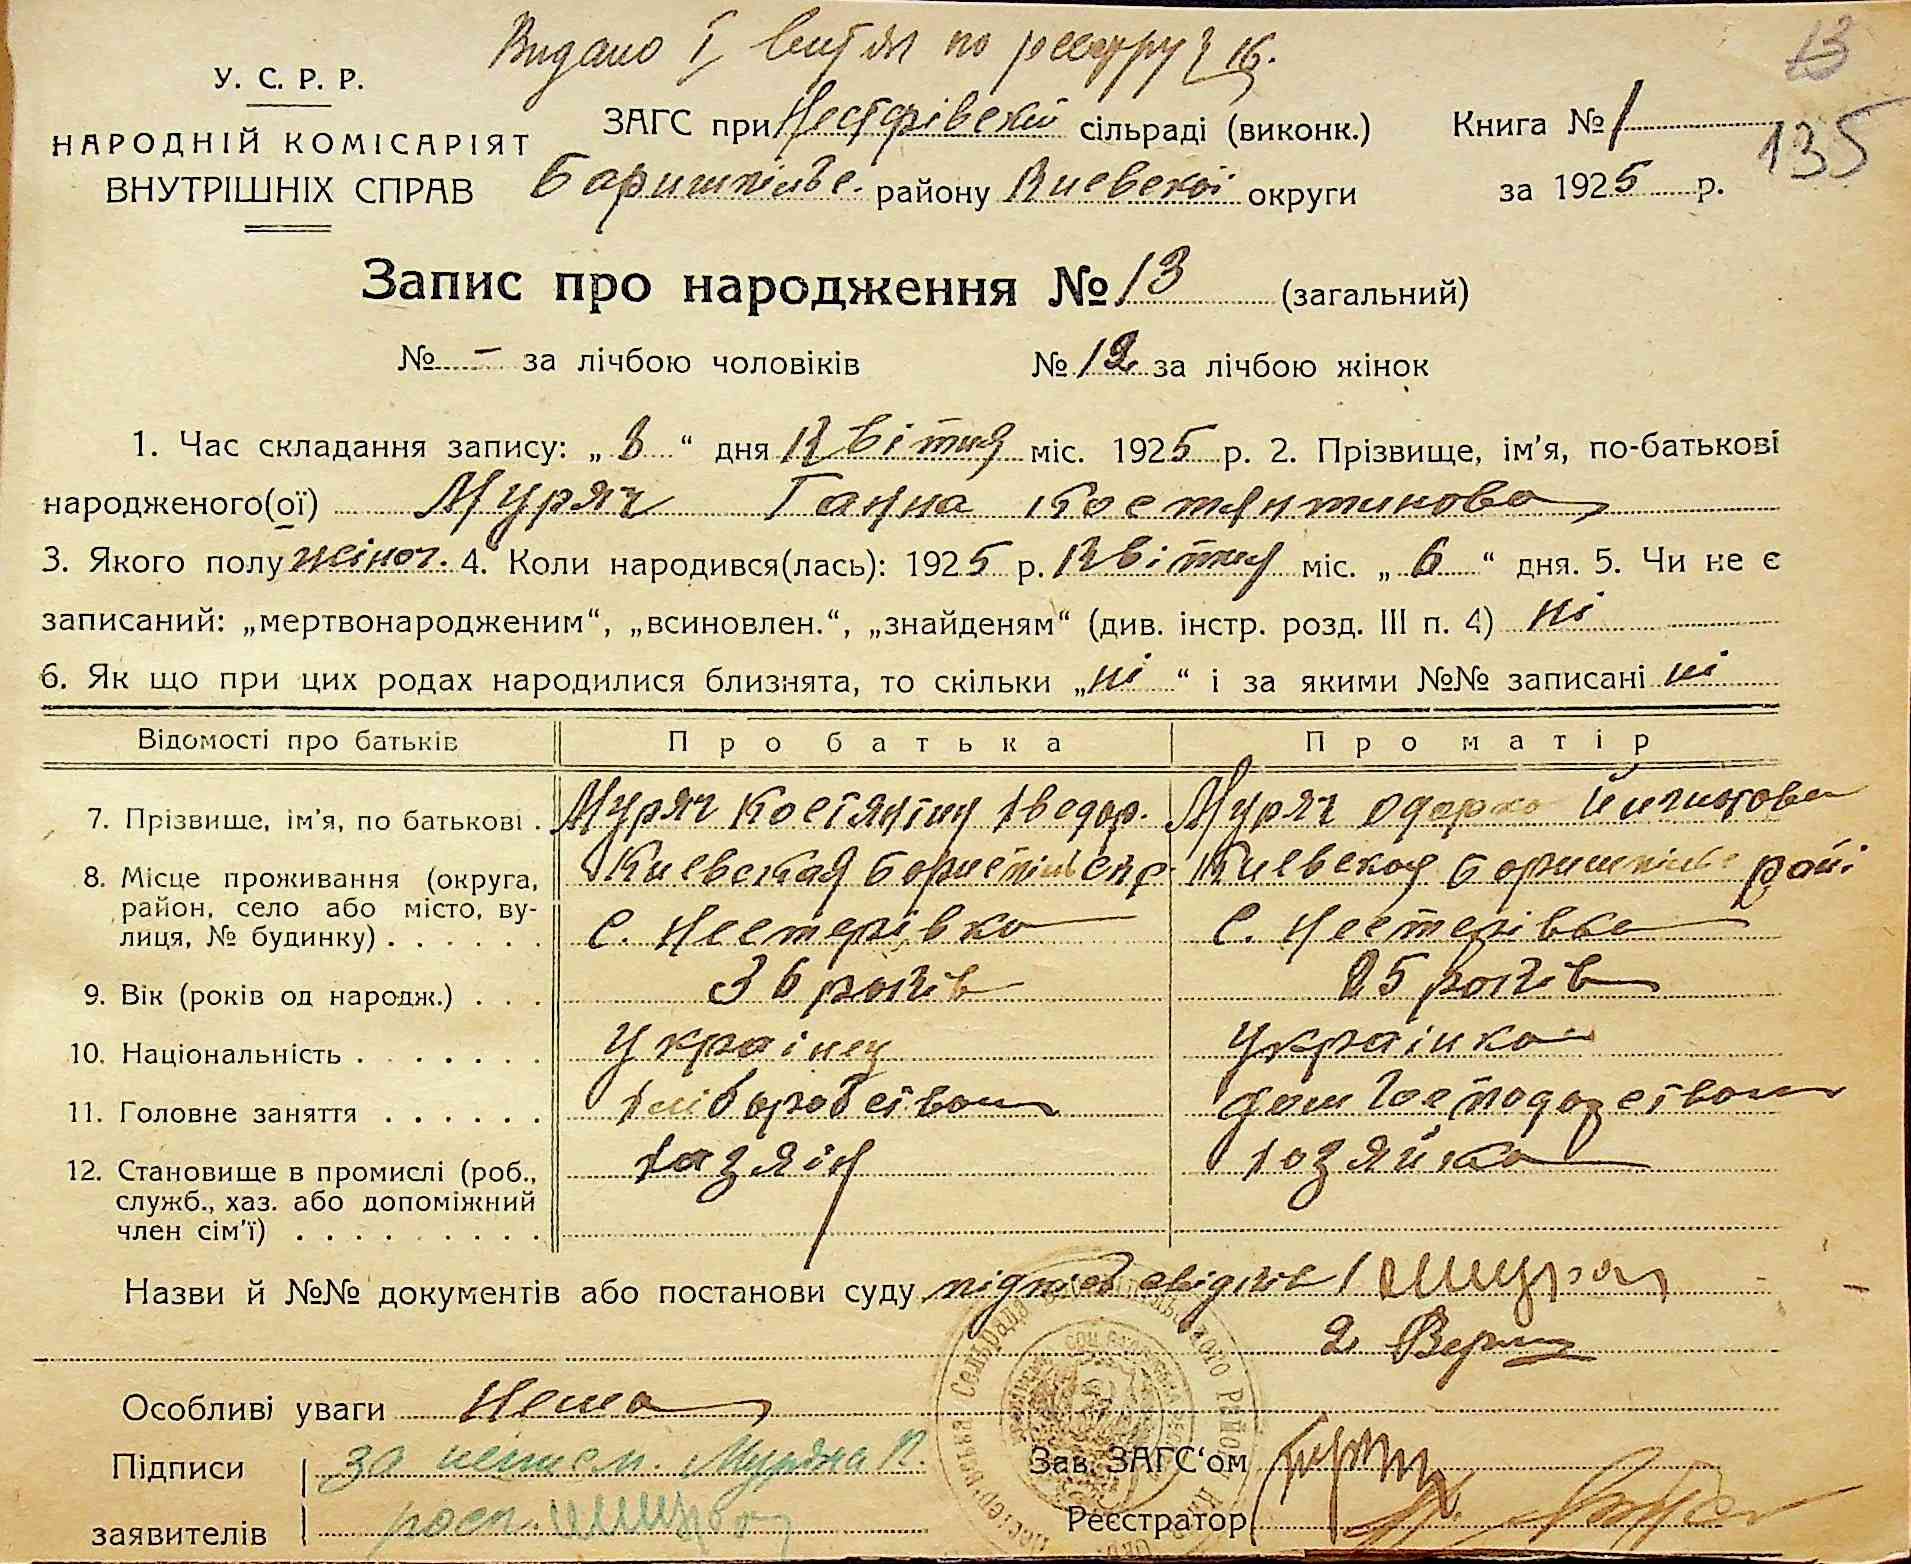 Видано І витяг по реєстру 16.
13
135
У. С. Р. Р.
НАРОДНІЙ КОМІСАРІЯТ
ВНУТРІШНІХ СПРАВ
ЗАГС при Нестерівскій сільраді (виконк.)
Баришпільс. району Киевскої округи
Книга № 1
за 1925 р.
Запис про народження № 13 (загальний)
№ – за лічбою чоловіків № 12 за лічбою жінок
1. Час складання запису: „ 8 “ дня Квітня міс. 1925 р. 2. Прізвище, ім'я, по-батькові
народженого(ої) Муряч Ганна Костянтинова
3. Якого полу жіноч. 4. Коли народився(лась): 1925 р. Квітня міс. „ 6 “ дня. 5. Чи не є
записаний: „мертвонародженим“, „всиновлен.“, „знайденям“ (див. інстр. розд. III п. 4) ні
6. Як що при цих родах народилися близнята, то скільки „ ні “ і за якими №№ записані ні
Відомості про батьків Про батька Про матір
7. Прізвище, ім'я, по батькові . Муряч Костянтин Хведор. Муряч Одарка
8. Місце проживання (округа, район, село або місто, вулиця, № будинку) . . . . . .
Киевская
с. Нестерівка
Киевская рай.
с. Нестерівка
9. Вік (років од народж.) . . . 36 років 25 років
10. Національність . . . . . . . Украінец Украінка
11. Головне заняття . . . . . . хліборобством дом господарством
12. Становище в промислі (роб., служб., хаз. або допоміжний член сім'ї) . . . . . . . . .
хазяін хозяйка
Назви й №№ документів або постанови суду підпис свідків 1
2
Особливі уваги Нема
Підписи
заявителів
за Муряча К.
росп.
Зав. ЗАГС‘ом
Реєстратор